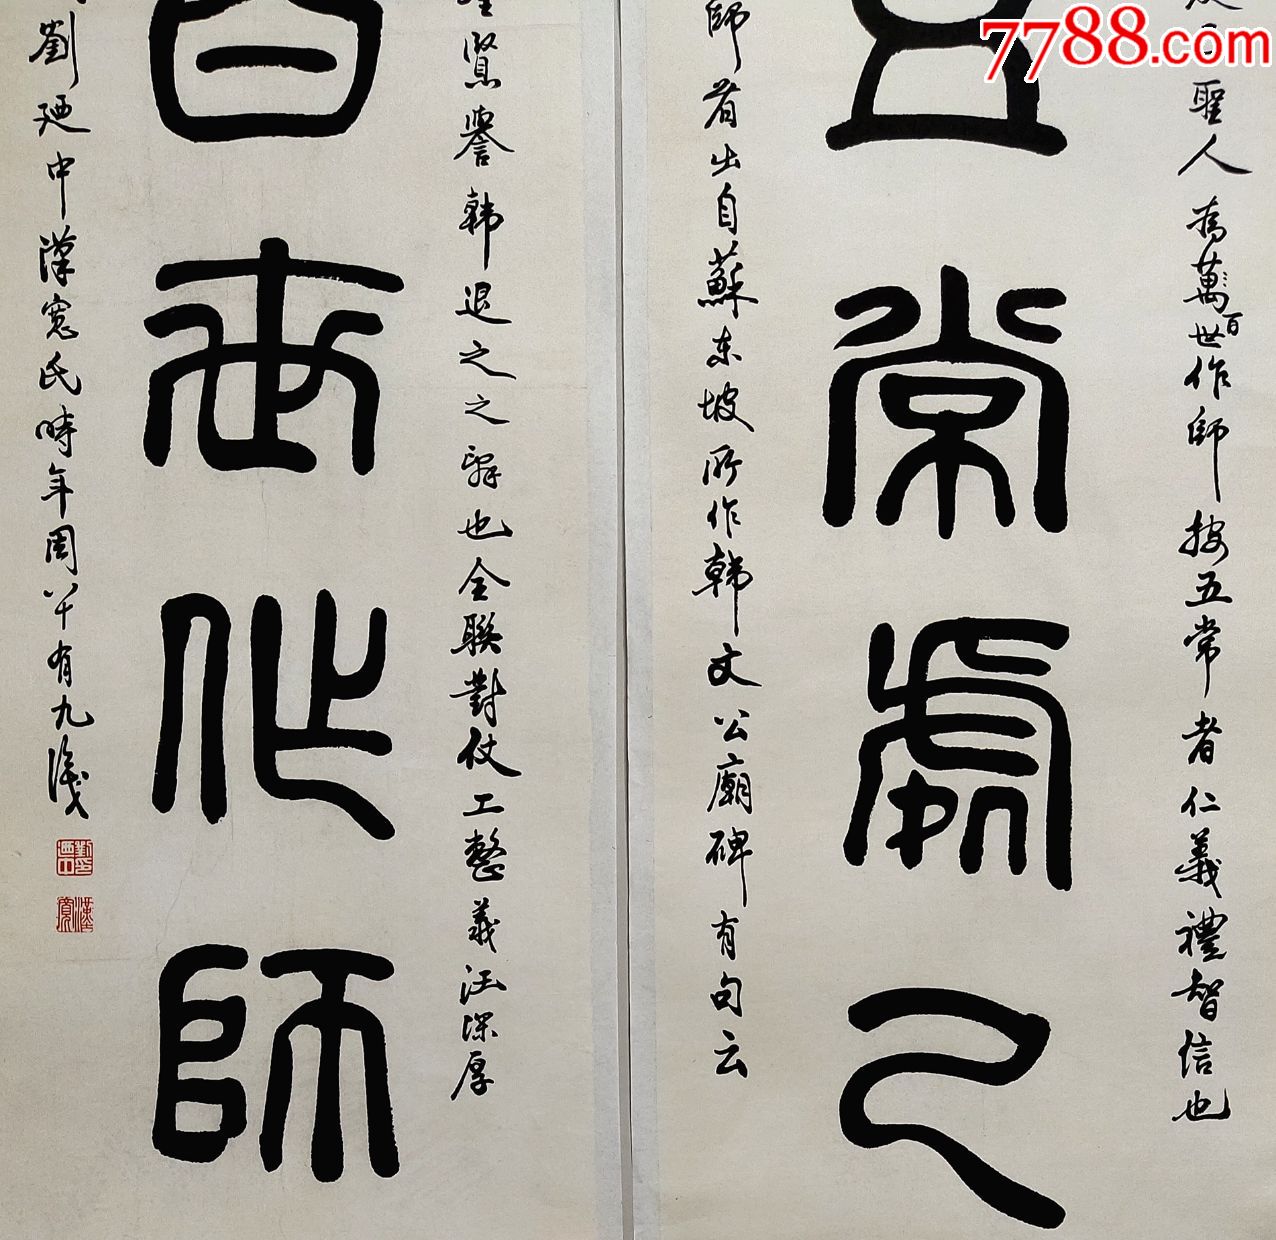 7788.com
聖人為萬世作師按五常者仁義禮智信也
百
五常處己
師者出自蘇東坡所作韓文公廟碑有句云
賢譽韓退之之辭也全聯對仗工整義汪深厚
百世作師
劉廼中漢寬氏時年周八十有九識
漢寬